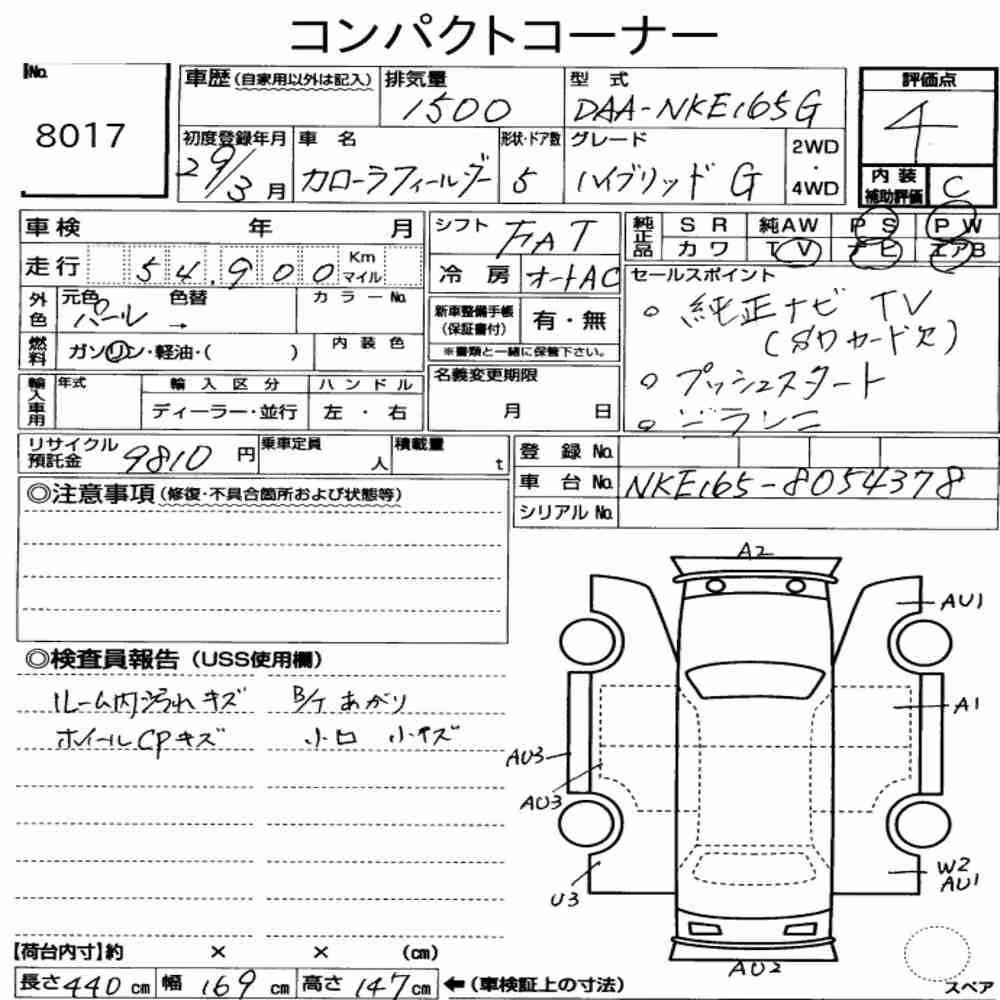 コンパクトコーナー
No.
8017
車歴(自家用以外は記入)
排気量
1500
型 式
DAA-NKE165G
評価点
4
初度登録年月
29/3月
車 名
カローラフィールダー
形状・ドア数
5
グレード
ハイブリッド G
2WD
・
4WD
内装
補助評価
C
車検 年 月
シフト
FAT
純正品
SR 純AW PS PW
カワ TV ナビ エアB
走行 54,900 Km
マイル
冷房
オートAC
セールスポイント
○ 純正ナビ TV
(SDカード欠)
○ プッシュスタート
外色
元色 色替 カラーNo.
パール →
新車整備手帳
(保証書付)
有・無
※書類と一緒に保管下さい。
燃料
ガソリン・軽油・( )
内装色
輸入車用
年式
輸入区分
ハンドル
ディーラー・並行
左 ・ 右
名義変更期限
月 日
リサイクル
預託金
9810 円
乗車定員
人
積載量
t
登録 No.
車台 No.
NKE165-8054378
シリアル No.
◎注意事項(修復・不具合箇所および状態等)
◎検査員報告(USS使用欄)
ルーム内汚れキズ B/Tあがり
ホイールCPキズ 小凹 小キズ
A2
AU1
A1
AU3
AU3
U3
W2
AU1
AU2
スペア
【荷台内寸】約 × × (cm)
長さ440cm 幅169cm 高さ147cm ←(車検証上の寸法)